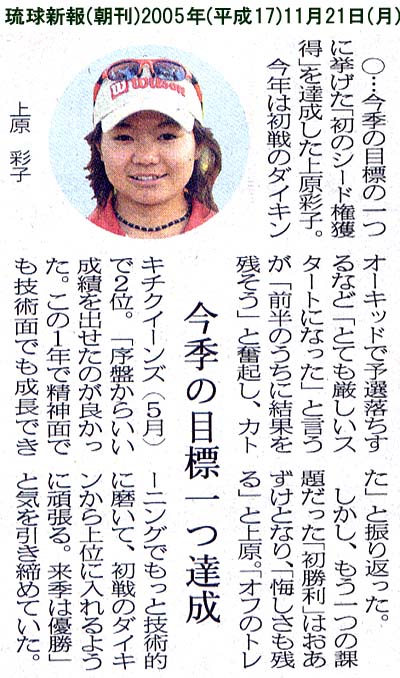 琉球新報(朝刊)2005年(平成17)11月21日(月)
Wilson
上原 彩子
今季の目標一つ達成
○…今季の目標の一つ
に挙げた「初のシード権獲
得」を達成した上原彩子。
今年は初戦のダイキン
オーキッドで予選落ちす
るなど「とても厳しいス
タートになった」と言う
が「前半のうちに結果を
残そう」と奮起し、カト
キチクイーンズ(5月)
で2位。「序盤からいい
成績を出せたのが良かっ
た。この1年で精神面で
も技術面でも成長でき
た」と振り返った。
しかし、もう一つの課
題だった「初勝利」はおあ
ずけとなり、「悔しさも残
る」と上原。「オフのトレ
ーニングでもっと技術的
に磨いて、初戦のダイキ
ンから上位に入れるよう
に頑張る。来季は優勝」
と気を引き締めていた。